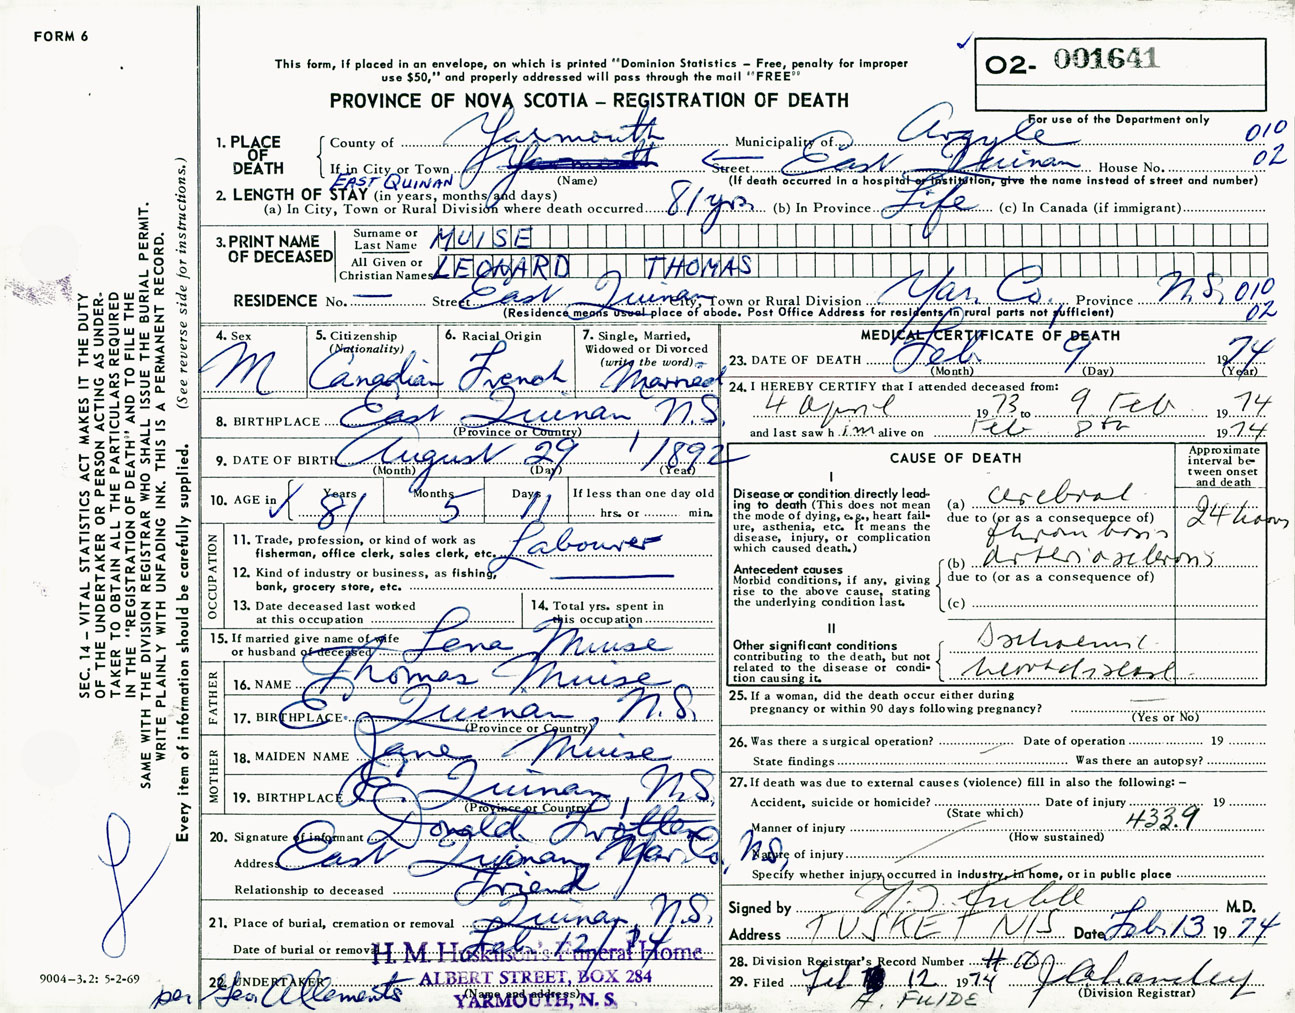 FORM 6
This form, if placed in an envelope, on which is printed "Dominion Statistics – Free, penalty for improper
use $50," and properly addressed will pass through the mail "FREE"
PROVINCE OF NOVA SCOTIA – REGISTRATION OF DEATH
O2- 001641
For use of the Department only
010
02
1. PLACE OF DEATH
County of Yarmouth Municipality of Argyle
If in City or Town Yarmouth Street East Quinan House No.
EAST QUINAN (Name) (If death occurred in a hospital or institution, give the name instead of street and number)
2. LENGTH OF STAY (in years, months and days)
(a) In City, Town or Rural Division where death occurred 81 yrs (b) In Province Life (c) In Canada (if immigrant)
3. PRINT NAME OF DECEASED
Surname or Last Name MUISE
All Given or Christian Names LEONARD THOMAS
RESIDENCE No. — Street East Quinan City, Town or Rural Division Yar. Co. Province N.S. 010
02
(Residence means usual place of abode. Post Office Address for residents in rural parts not sufficient)
4. Sex M
5. Citizenship (Nationality) Canadian
6. Racial Origin French
7. Single, Married, Widowed or Divorced (write the word) Married
8. BIRTHPLACE East Quinan N.S.
(Province or Country)
9. DATE OF BIRTH August 29 1892
(Month) (Day) (Year)
10. AGE in Years 81 Months 5 Days 11 If less than one day old
hrs. or min.
OCCUPATION
11. Trade, profession, or kind of work as
fisherman, office clerk, sales clerk, etc. Labourer
12. Kind of industry or business, as fishing,
bank, grocery store, etc.
13. Date deceased last worked
at this occupation
14. Total yrs. spent in
this occupation
15. If married give name of wife
or husband of deceased Lena Muise
FATHER
16. NAME Thomas Muise
17. BIRTHPLACE E. Quinan, N.S.
(Province or Country)
MOTHER
18. MAIDEN NAME Jane Muise
19. BIRTHPLACE E. Quinan, N.S.
(Province or Country)
20. Signature of informant Donald
Address East Quinan Yar. Co. N.S.
Relationship to deceased Friend
21. Place of burial, cremation or removal Quinan, N.S.
Date of burial or removal Feb. 12/74
H. M. Huskilson's Funeral Home
22. UNDERTAKER ALBERT STREET, BOX 284
(Name and address)
YARMOUTH, N. S.
per
MEDICAL CERTIFICATE OF DEATH
23. DATE OF DEATH Feb. 9 1974
(Month) (Day) (Year)
24. I HEREBY CERTIFY that I attended deceased from:
4 April 1973 to 9 Feb 1974
and last saw him alive on Feb 8th 1974
CAUSE OF DEATH
Approximate interval between onset and death
I
Disease or condition directly leading to death (This does not
mean the mode of dying, e.g., heart failure, asthenia, etc. It means the
disease, injury, or complication
which caused death.)
(a) cerebral
due to (or as a consequence of)
thrombosis
24 hours
Antecedent causes
Morbid conditions, if any, giving
rise to the above cause, stating
the underlying condition last.
(b) arteriosclerosis
due to (or as a consequence of)
(c)
II
Other significant conditions
contributing to the death, but not
related to the disease or condition causing it.
Ischaemic
heart disease
25. If a woman, did the death occur either during
pregnancy or within 90 days following pregnancy?
(Yes or No)
26. Was there a surgical operation? Date of operation 19
State findings Was there an autopsy?
27. If death was due to external causes (violence) fill in also the following: –
Accident, suicide or homicide? Date of injury 19
(State which) 433.9
Manner of injury
(How sustained)
Nature of injury
Specify whether injury occurred in industry, in home, or in public place
Signed by M.D.
Address TUSKET N/S Date Feb 13 1974
28. Division Registrar's Record Number
29. Filed Feb 12 1974
(Division Registrar)
SEC. 14 – VITAL STATISTICS ACT MAKES IT THE DUTY
OF THE UNDERTAKER OR PERSON ACTING AS UNDERTAKER TO OBTAIN ALL THE PARTICULARS REQUIRED
IN THE "REGISTRATION OF DEATH" AND TO FILE THE
SAME WITH THE DIVISION REGISTRAR WHO SHALL ISSUE THE BURIAL PERMIT.
WRITE PLAINLY WITH UNFADING INK. THIS IS A PERMANENT RECORD.
Every item of information should be carefully supplied. (See reverse side for instructions.)
9004–3.2: 5-2-69